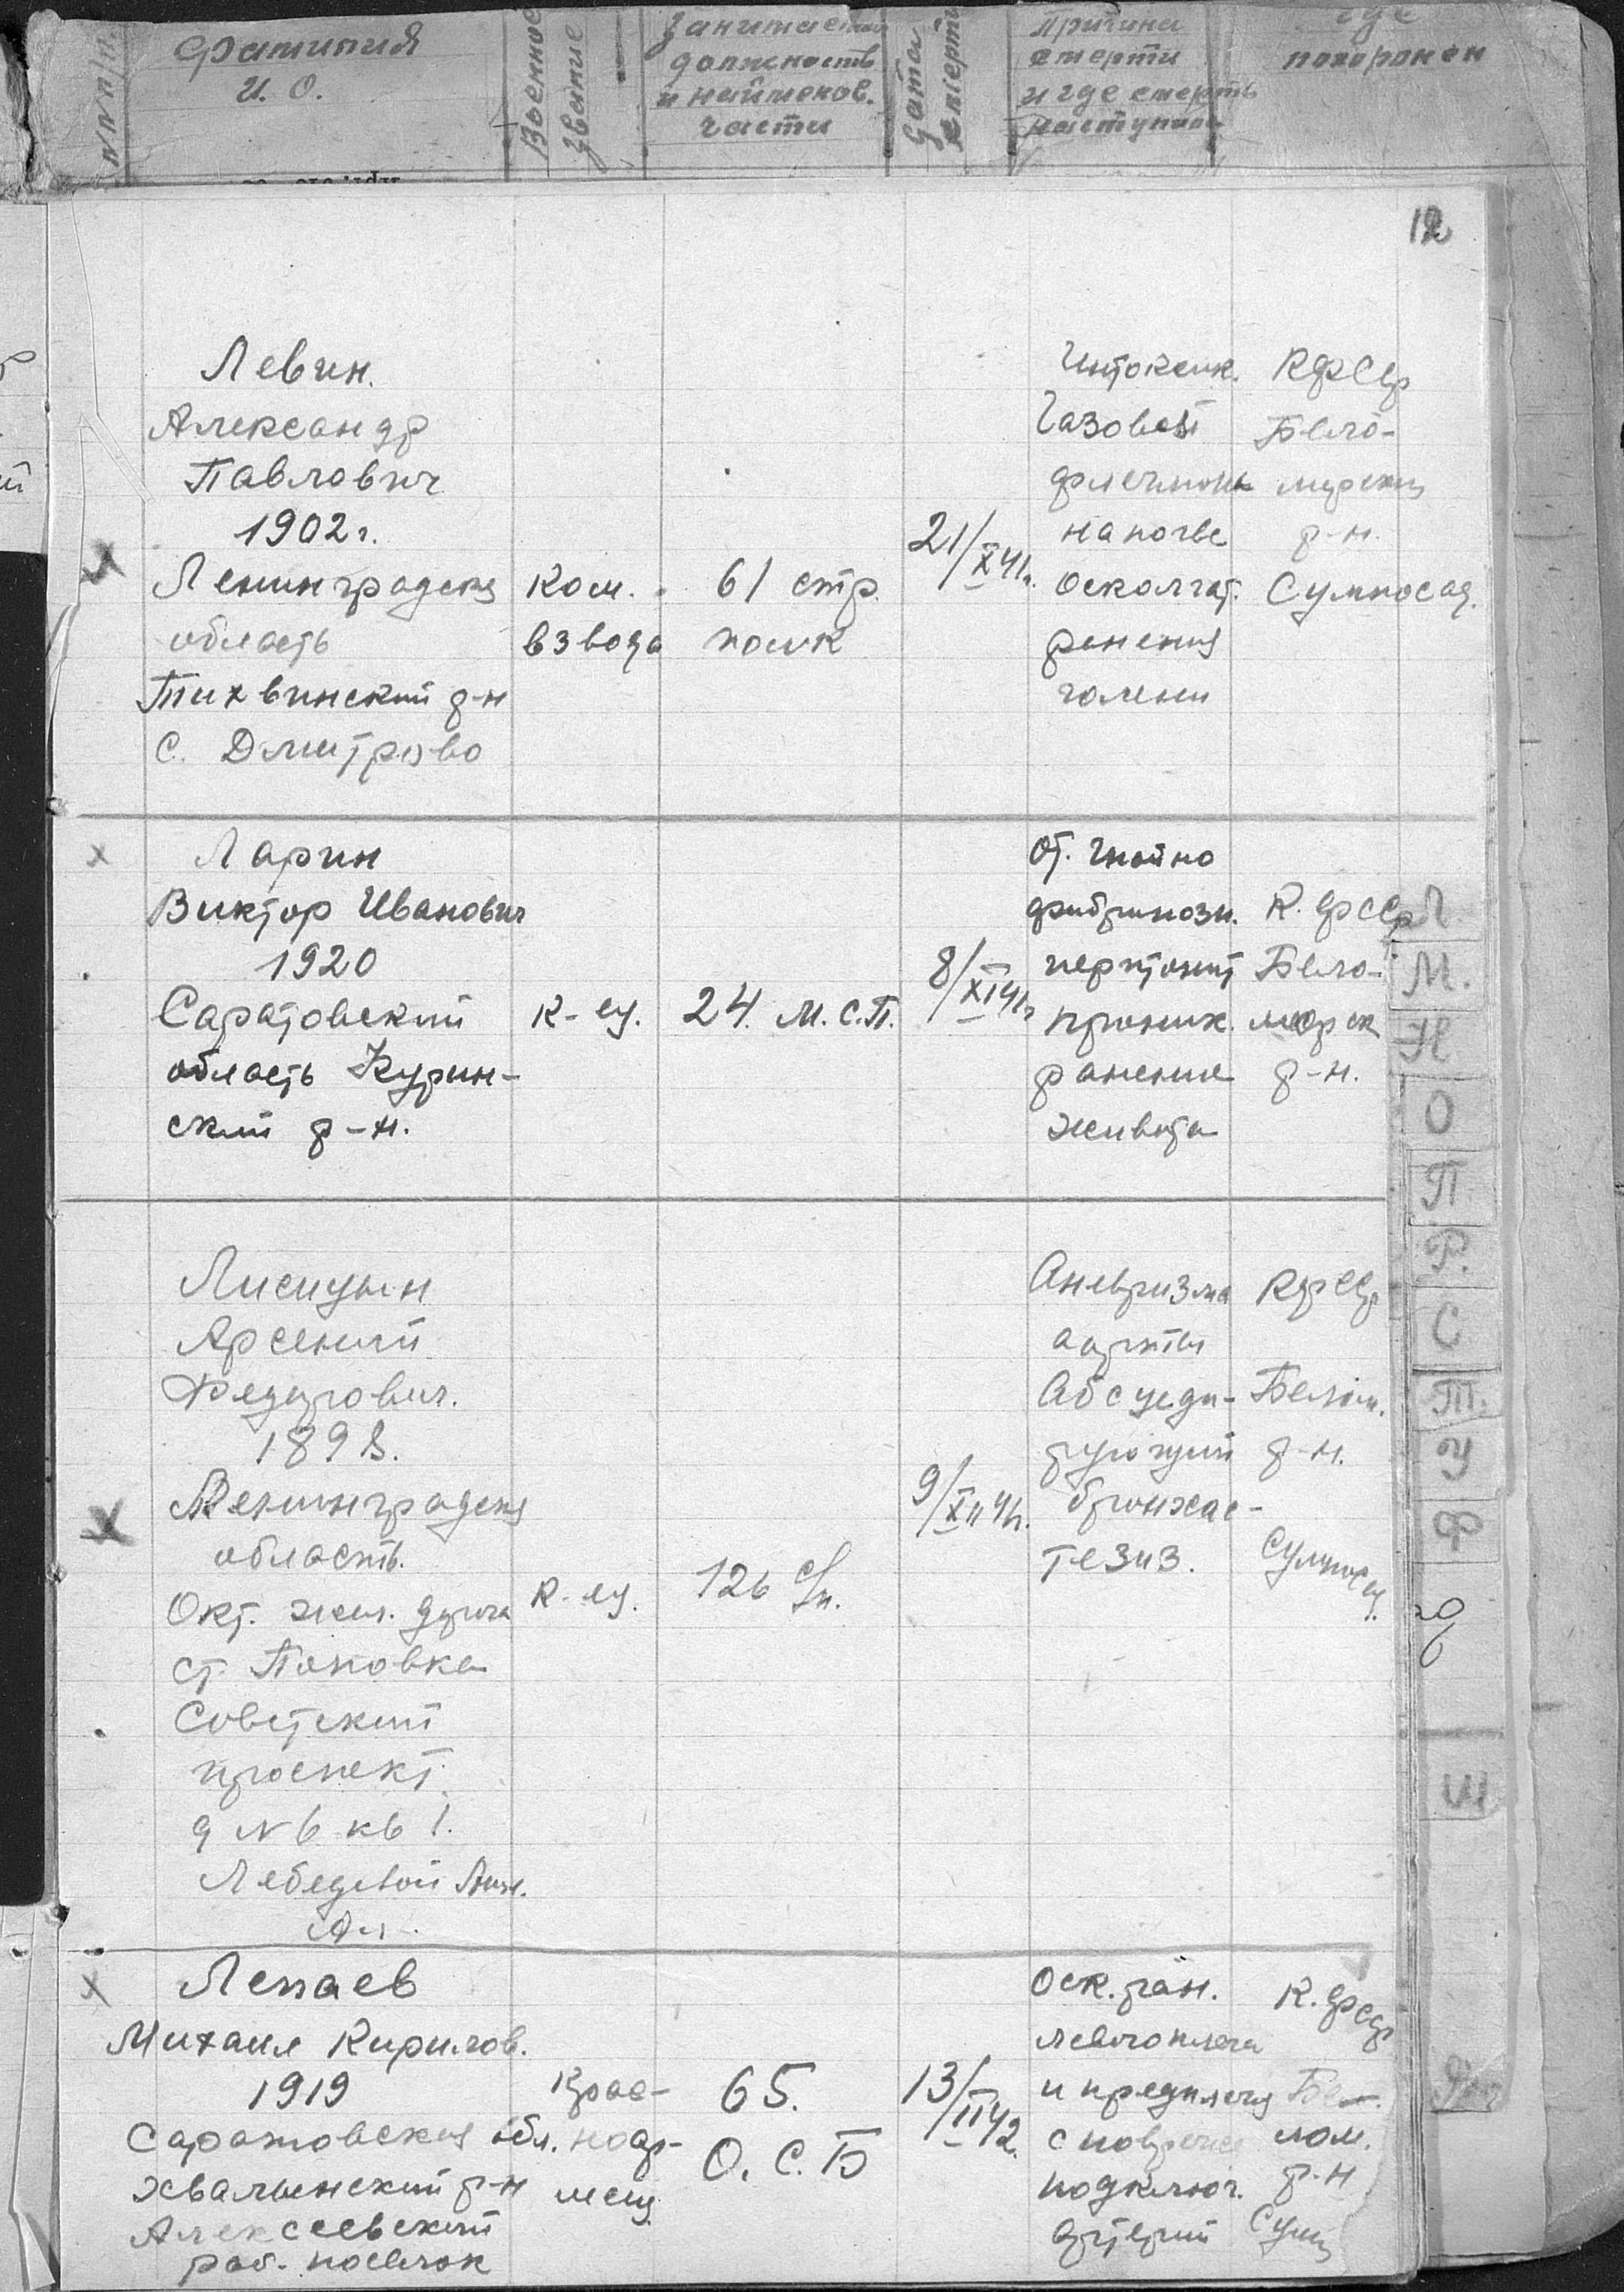 № п/п.
Фамилия
И. О.
Военное
звание
Занимаемая
должность
и наименов.
части
Дата
смерти
Причина
смерти
и где смерть
наступила
где
похоронен
12
Левин.
Александр
Павлович
1902 г.
Ленинградская
область
Тихвинский р-н
с. Дмитрово
Ком.
взвода
61 стр.
полк
21/X 41г.
Интоксик.
Газовой
флегмоны
на почве
осколчат.
ранения
голени
КФССР
Бело-
морский
р-н.
Сумпосад.
Ларин
Виктор Иванович
1920
Саратовский
область Курин-
ский р-н.
к-ец.
24. М.С.П.
8/XI 41г.
От. гнойно
фибринозн.
перитонит
проник.
ранение
живота
К.ФССР
Бело-
морск
р-н.
Лисицын
Арсений
Федорович.
1898.
Ленинградская
область.
Окт. жел. дорога
ст. Поповка
Советский
проспект
д № 6 кв 1.
Лебедевой Анн.
к-ец.
126 с/п.
9/XII 41г.
Аневризма
аорты
Абсцеди-
рующий
бронхоэ-
тезиз.
КФССР
Белом.
р-н.
Сумпосад.
Лепаев
Михаил Кирилов.
1919
Саратовская обл.
Хвалынский р-н
Алексеевский
раб. поселок
Крас-
ноар-
меец
65.
О. С. Б
13/II 42.
Оск. ран.
левого плеча
и предплечья
с повреж
подключ.
артерии
К.ФССР
Бе-
лом.
р-н
Сумп
Л.
М.
Н
О
П
Р.
С
Т.
У
Ф
Ш